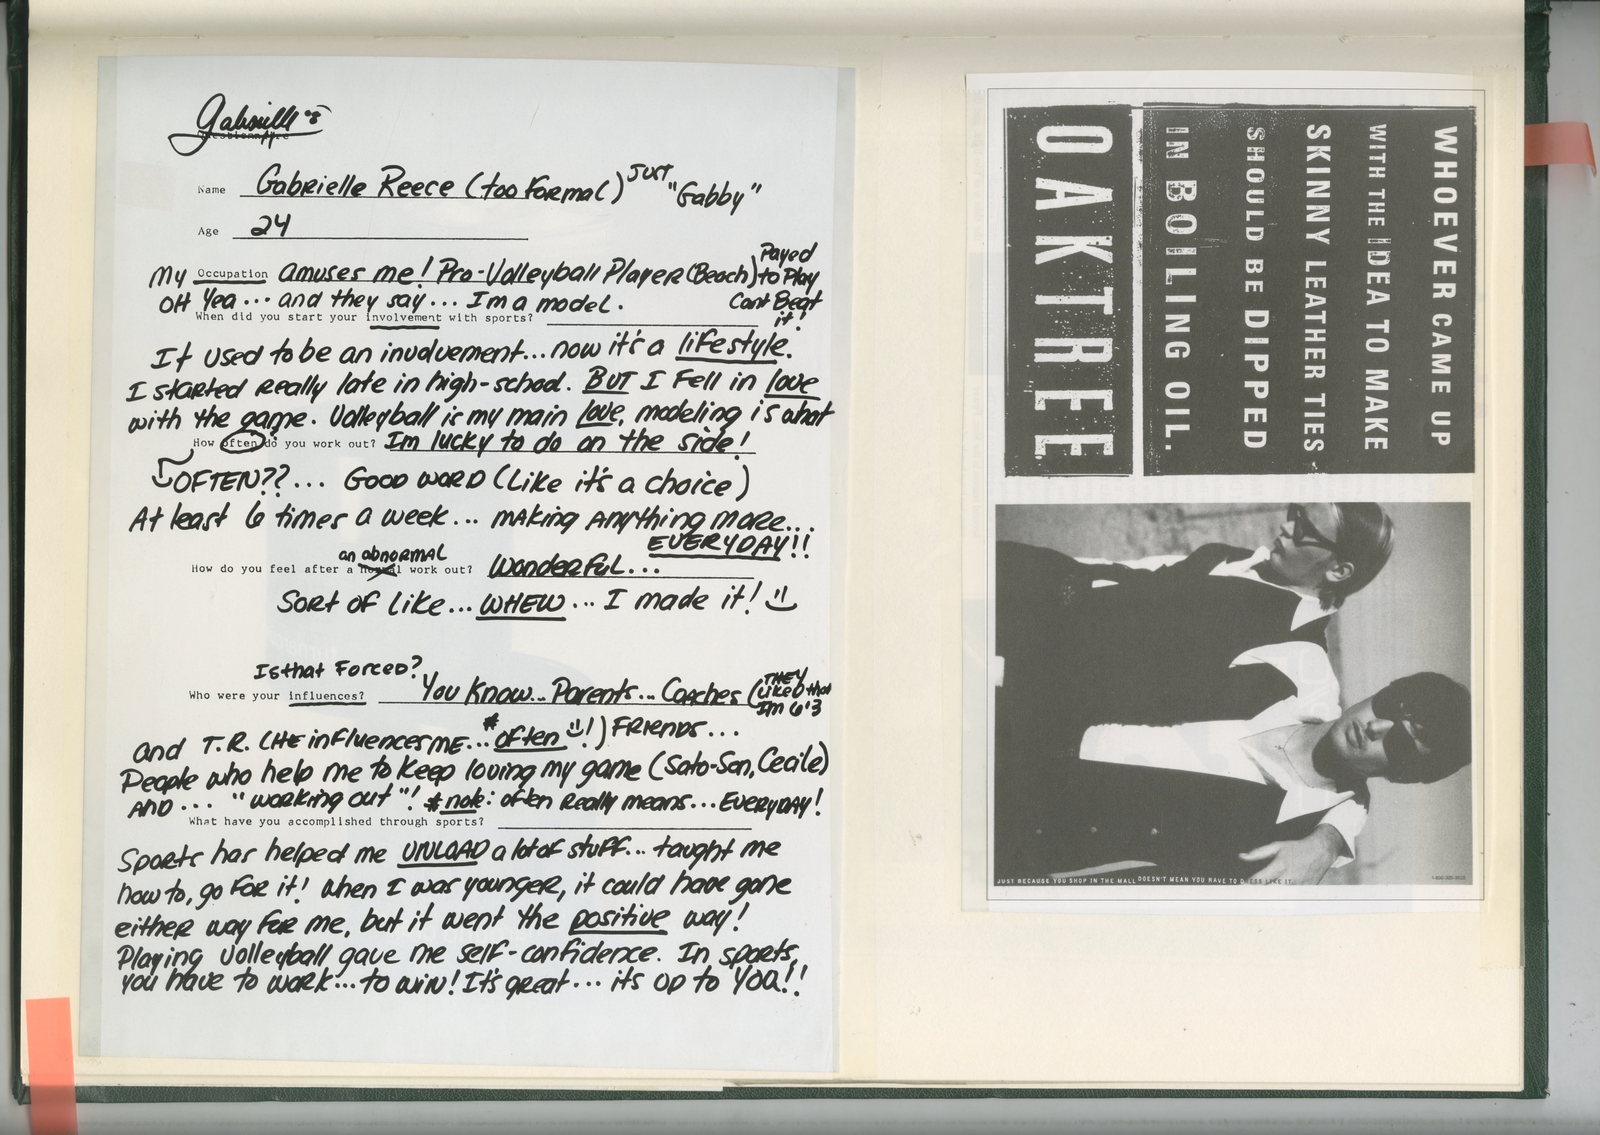 Gabrielle's
Questionnaire
Name Gabrielle Reece (too Formal) JUST "Gabby"
Age 24
My Occupation amuses me! Pro-Volleyball Player (Beach) Payed to Play Cant Beat it!
OH Yea... and they say... I'm a model.
When did you start your involvement with sports?
It used to be an involvement... now it's a lifestyle.
I started really late in high-school. BUT I fell in love
with the game. Volleyball is my main love, modeling is what
How often do you work out? Im lucky to do on the side!
OFTEN??... GOOD WORD (Like it's a choice)
At least 6 times a week... making anything more...
EVERYDAY!!
How do you feel after a normal an abnormal work out? Wonderful...
Sort of like... WHEW... I made it!
Is that Forced?
Who were your influences? You Know... Parents... Coaches (THEY Liked that Im 6'3
and T.R. (HE influences ME... *often !) FRIENDS...
People who help me to keep loving my game (Sato-San, Cecile)
AND... "working out"! *note: often really means... EVERYDAY!
What have you accomplished through sports?
Sports has helped me UNLOAD a lot of stuff... taught me
how to, go for it! When I was younger, it could have gone
either way for me, but it went the positive way!
Playing volleyball gave me self-confidence. In sports,
you have to work... to win! It's great... its up to YOU!!
WHOEVER CAME UP
WITH THE IDEA TO MAKE
SKINNY LEATHER TIES
SHOULD BE DIPPED
IN BOILING OIL.
OAKTREE
JUST BECAUSE YOU SHOP IN THE MALL DOESN'T MEAN YOU HAVE TO DRESS LIKE IT.